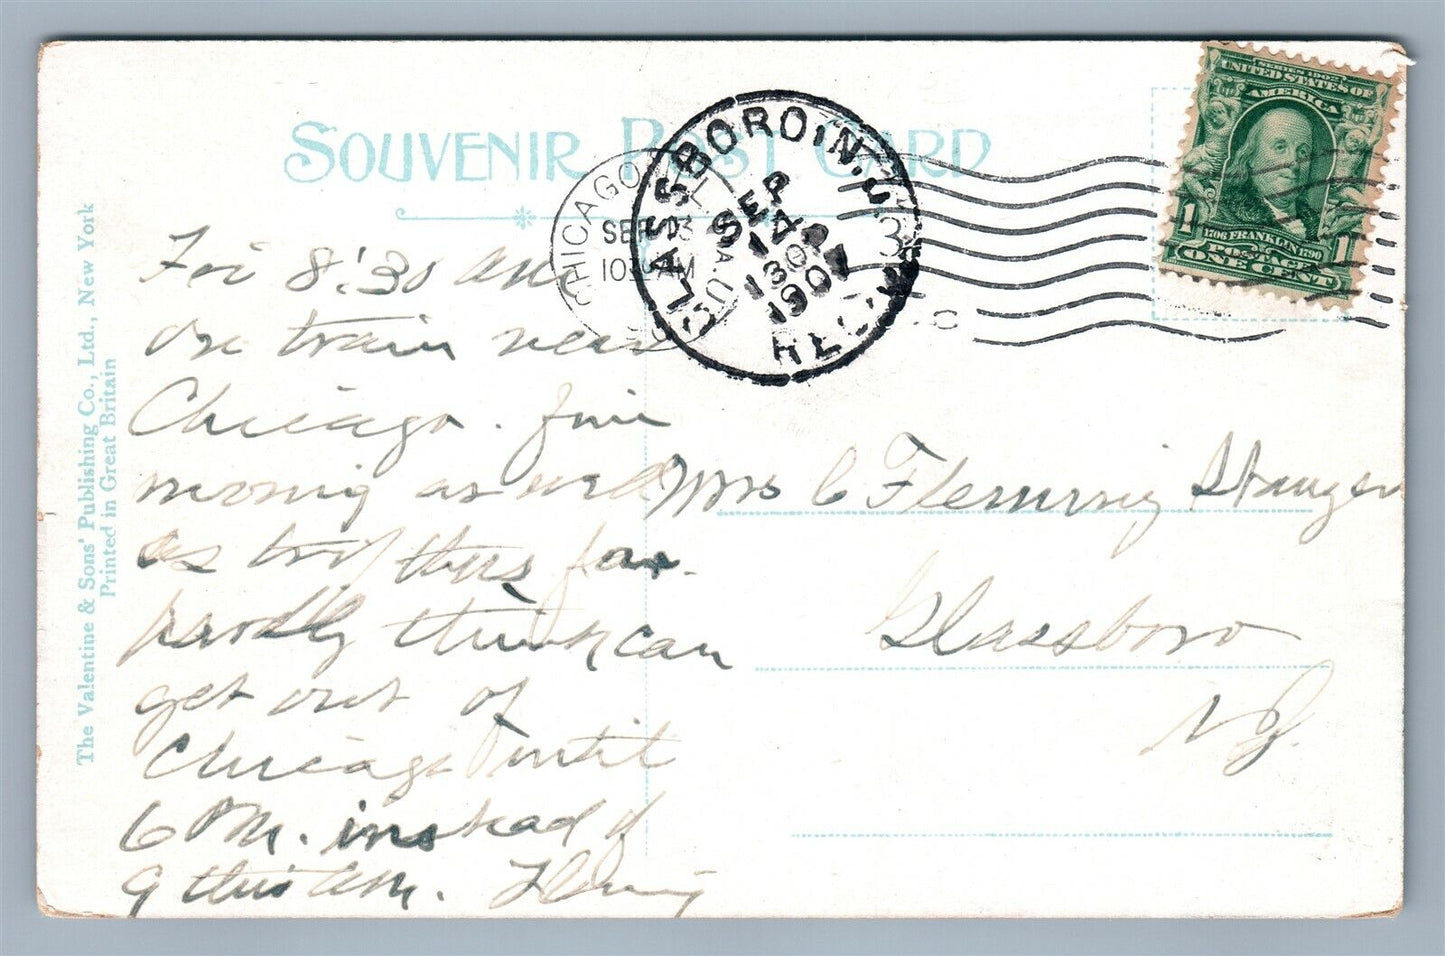 SOUVENIR POST CARD
The Valentine & Sons' Publishing Co., Ltd., New York
Printed in Great Britain
CHICAGO
SEP 13
10 AM
GLASSBORO, N.J.
SEP
14
130
1907
REC'D
SERIES 1902
UNITED STATES OF
AMERICA
1706 FRANKLIN 1790
1 1
POSTAGE
ONE CENT
Fri 8:30 AM
on train near
Chicago. fine
morning as well
as trip thus far.
think can
get out of
Chicago until
6 PM. instead of
9 this AM. Fleming
Mrs C Fleming Stanger
Glassboro
NJ.